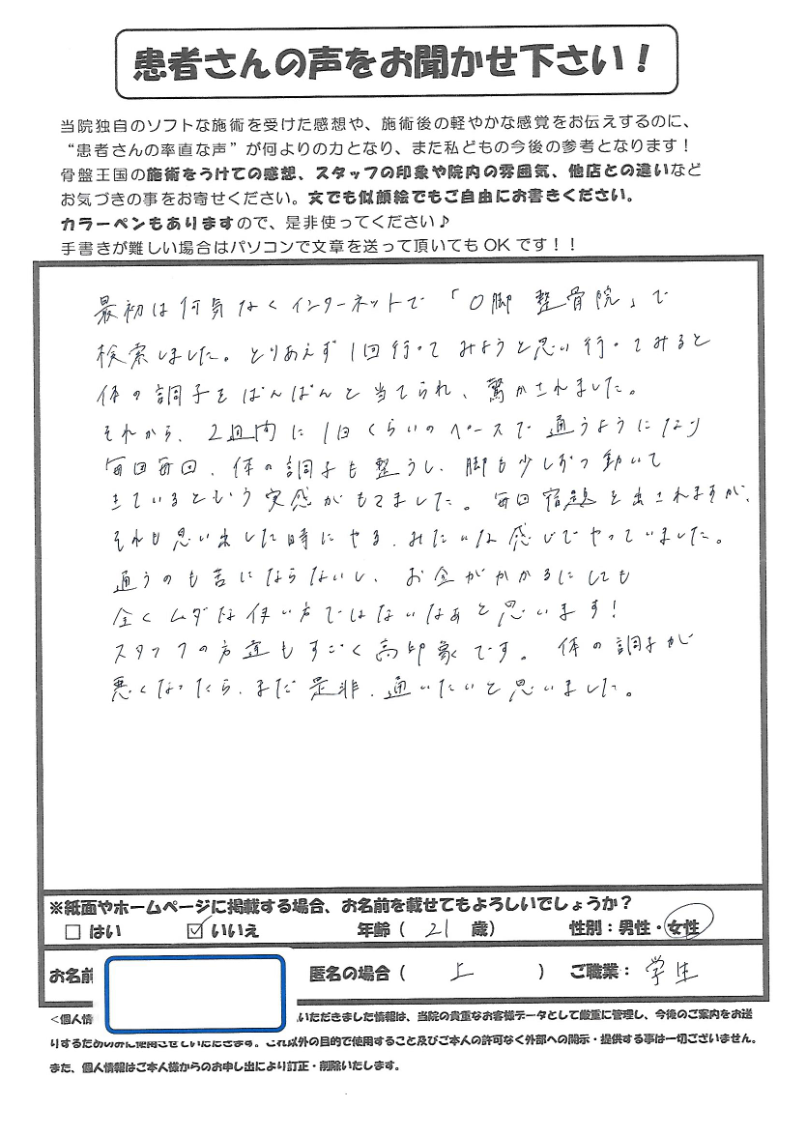 患者さんの声をお聞かせ下さい！
当院独自のソフトな施術を受けた感想や、施術後の軽やかな感覚をお伝えするのに、
“患者さんの率直な声”が何よりの力となり、また私どもの今後の参考となります！
骨盤王国の施術をうけての感想、スタッフの印象や院内の雰囲気、他店との違いなど
お気づきの事をお寄せください。文でも似顔絵でもご自由にお書きください。
カラーペンもありますので、是非使ってください♪
手書きが難しい場合はパソコンで文章を送って頂いてもOKです！！
最初は何気なくインターネットで「O脚 整骨院」で
検索しました。とりあえず1回行ってみようと思い行ってみると
体の調子をばんばんと当てられ、驚かされました。
それから、2週間に1回くらいのペースで通うようになり
毎回毎回、体の調子も整うし、脚も少しずつ動いて
きているという実感がもてました。毎回宿題を出されますが、
それも思い出した時にやる、みたいな感じでやっていました。
通うのも苦にならないし、お金がかかるにしても
全くムダな使い方ではないなぁと思います！
スタッフの方達もすごく高印象です。体の調子が
悪くなったら、まだ是非、通いたいと思いました。
※紙面やホームページに掲載する場合、お名前を載せてもよろしいでしょうか？
□ はい ☑ いいえ 年齢（ 21 歳） 性別：男性・女性
お名前 匿名の場合（ 上 ） ご職業： 学生
<個人情 いただきました情報は、当院の貴重なお客様データとして厳重に管理し、今後のご案内をお送
りするためのみに使用させていただきます。これ以外の目的で使用すること及びご本人の許可なく外部への開示・提供する事は一切ございません。
また、個人情報はご本人様からのお申し出により訂正・削除いたします。